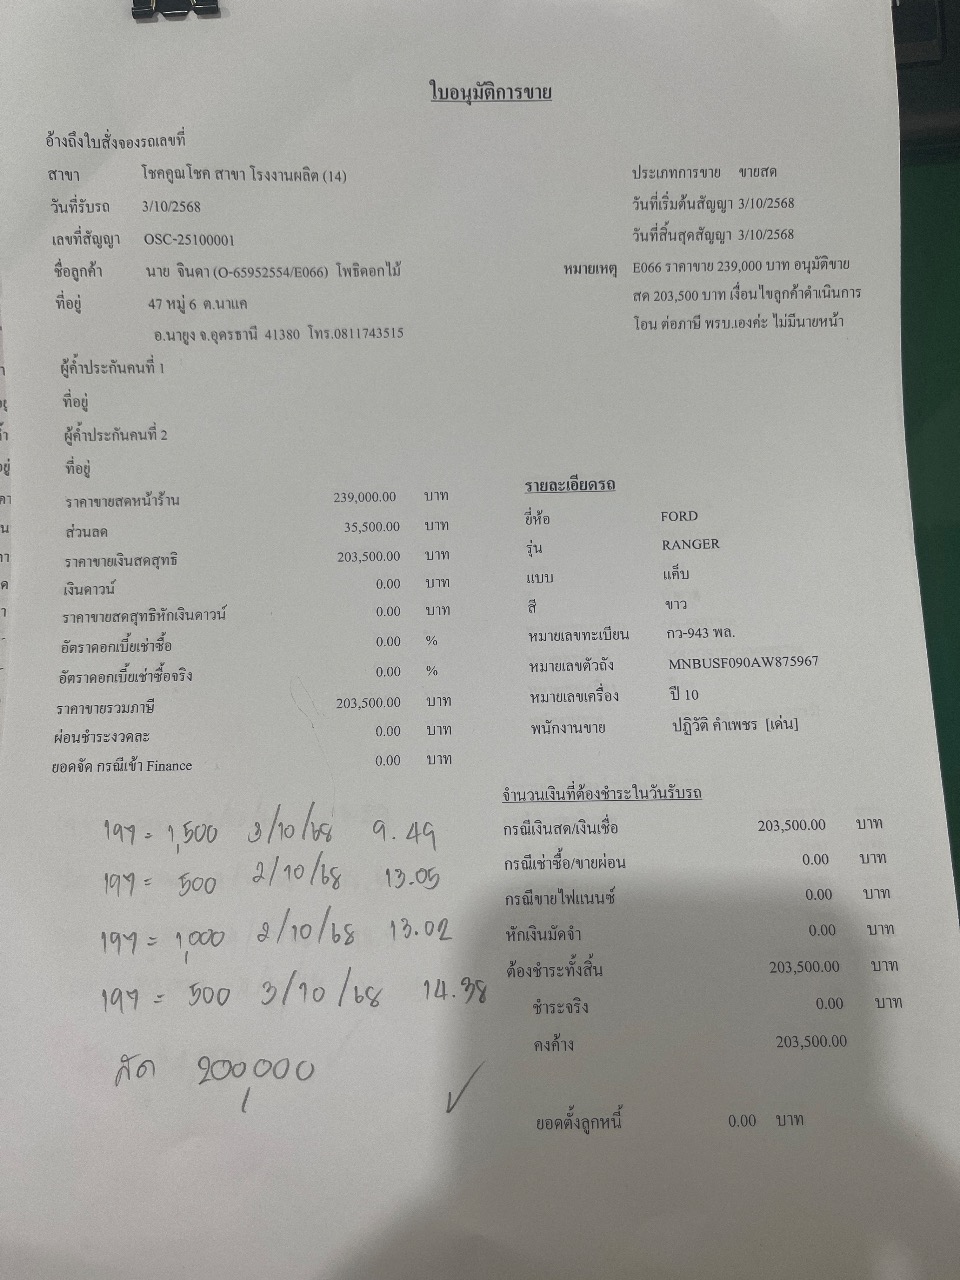 ใบอนุมัติการขาย
อ้างถึงใบสั่งจองรถเลขที่
สาขา โชคคูณโชค สาขา โรงงานผลิต (14)
ประเภทการขาย ขายสด
วันที่รับรถ 3/10/2568
วันที่เริ่มต้นสัญญา 3/10/2568
เลขที่สัญญา OSC-25100001
วันที่สิ้นสุดสัญญา 3/10/2568
ชื่อลูกค้า นาย จินดา (O-65952554/E066) โพธิดอกไม้
หมายเหตุ E066 ราคาขาย 239,000 บาท อนุมัติขาย
สด 203,500 บาท เงื่อนไขลูกค้าดำเนินการ
โอน ต่อภาษี พรบ.เองค่ะ ไม่มีนายหน้า
ที่อยู่ 47 หมู่ 6 ต.นาแค
อ.นายูง จ.อุดรธานี 41380 โทร.0811743515
ผู้ค้ำประกันคนที่ 1
ที่อยู่
ผู้ค้ำประกันคนที่ 2
ที่อยู่
ราคาขายสดหน้าร้าน 239,000.00 บาท
ส่วนลด 35,500.00 บาท
ราคาขายเงินสดสุทธิ 203,500.00 บาท
เงินดาวน์ 0.00 บาท
ราคาขายสดสุทธิหักเงินดาวน์ 0.00 บาท
อัตราดอกเบี้ยเช่าซื้อ 0.00 %
อัตราดอกเบี้ยเช่าซื้อจริง 0.00 %
ราคาขายรวมภาษี 203,500.00 บาท
ผ่อนชำระงวดละ 0.00 บาท
ยอดจัด กรณีเข้า Finance 0.00 บาท
รายละเอียดรถ
ยี่ห้อ FORD
รุ่น RANGER
แบบ แค็บ
สี ขาว
หมายเลขทะเบียน กว-943 พล.
หมายเลขตัวถัง MNBUSF090AW875967
หมายเลขเครื่อง ปี 10
พนักงานขาย ปฏิวัติ คำเพชร [เด่น]
จำนวนเงินที่ต้องชำระในวันรับรถ
กรณีเงินสด/เงินเชื่อ 203,500.00 บาท
กรณีเช่าซื้อ/ขายผ่อน 0.00 บาท
กรณีขายไฟแนนซ์ 0.00 บาท
หักเงินมัดจำ 0.00 บาท
ต้องชำระทั้งสิ้น 203,500.00 บาท
ชำระจริง 0.00 บาท
คงค้าง 203,500.00
ยอดตั้งลูกหนี้ 0.00 บาท
= 1,500 3/10/68 9.49
= 500 2/10/68 13.05
= 1,000 2/10/68 13.02
= 500 3/10/68 14.38
สด 200,000